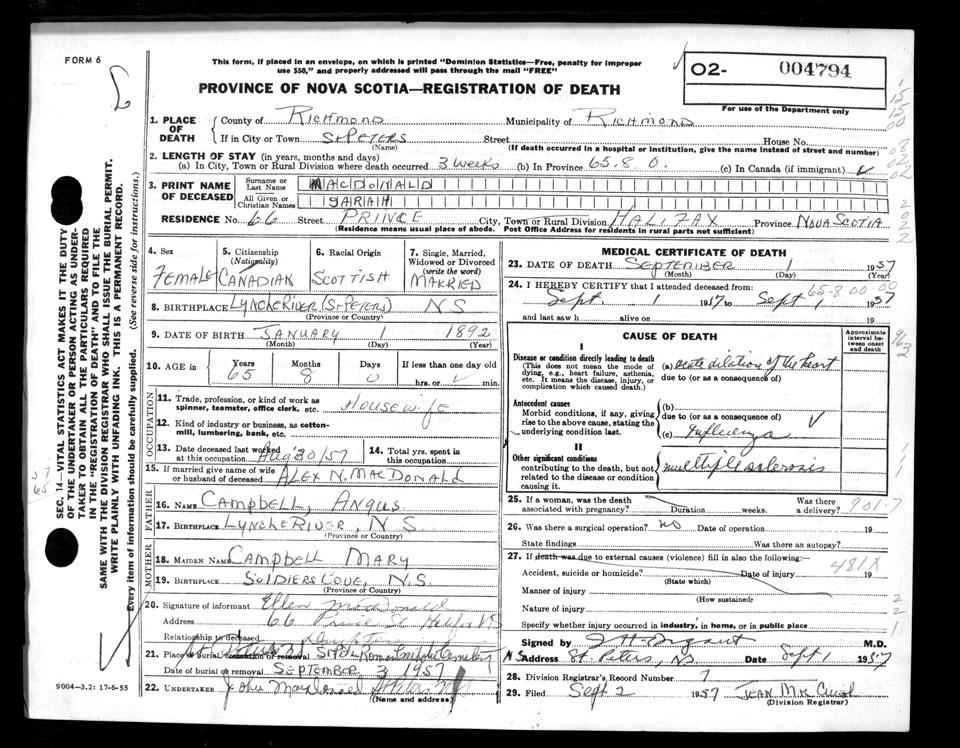 FORM 6
This form, if placed in an envelope, on which is printed "Dominion Statistics—Free, penalty for improper
use $50," and properly addressed will pass through the mail "FREE"
O2- 004794
For use of the Department only
PROVINCE OF NOVA SCOTIA—REGISTRATION OF DEATH
1. PLACE OF DEATH
County of RICHMOND Municipality of RICHMOND
If in City or Town ST PETERS Street House No.
(Name) (If death occurred in a hospital or institution, give the name instead of street and number)
2. LENGTH OF STAY (in years, months and days)
(a) In City, Town or Rural Division where death occurred 3 weeks (b) In Province 65.8 0. (c) In Canada (if immigrant)
3. PRINT NAME OF DECEASED
Surname or Last Name MACDONALD
All Given or Christian Names SARAH
RESIDENCE No. 66 Street PRINCE City, Town or Rural Division HALIFAX Province NOVA SCOTIA
(Residence means usual place of abode. Post Office Address for residents in rural parts not sufficient)
4. Sex FEMALE
5. Citizenship (Nationality) CANADIAN
6. Racial Origin SCOTTISH
7. Single, Married, Widowed or Divorced (write the word) MARRIED
8. BIRTHPLACE LYNCHE RIVER (ST PETERS) N S
(Province or Country)
9. DATE OF BIRTH JANUARY 1 1892
(Month) (Day) (Year)
10. AGE in Years 65 Months 8 Days 0 If less than one day old hrs. or min.
OCCUPATION
11. Trade, profession, or kind of work as spinner, teamster, office clerk, etc. Housewife
12. Kind of industry or business, as cotton-mill, lumbering, bank, etc.
13. Date deceased last worked at this occupation Aug 30/57
14. Total yrs. spent in this occupation
15. If married give name of wife or husband of deceased ALEX N. MACDONALD
FATHER
16. NAME CAMPBELL, ANGUS
17. BIRTHPLACE LYNCHE RIVER, N S
(Province or Country)
MOTHER
18. MAIDEN NAME CAMPBELL MARY
19. BIRTHPLACE SOLDIERS COVE, N.S.
(Province or Country)
20. Signature of informant Ellen MacDonald
Address 66 Prince St Halifax NS
Relationship to deceased Daughter
21. Place of burial, cremation or removal
Date of burial or removal SEPTEMBER 3 1957
22. UNDERTAKER
(Name and address)
9004-3.2: 17-6-55
MEDICAL CERTIFICATE OF DEATH
23. DATE OF DEATH SEPTEMBER 1 1957
(Month) (Day) (Year)
24. I HEREBY CERTIFY that I attended deceased from:
65-8 00-00
Sept. 1 1957 to Sept 1 1957
and last saw h alive on 19
CAUSE OF DEATH
Approximate interval between onset and death
I
Disease or condition directly leading to death
(This does not mean the mode of dying, e.g., heart failure, asthenia, etc. It means the disease, injury, or complication which caused death.)
(a) acute dilation of the heart
due to (or as a consequence of)
Antecedent causes
Morbid conditions, if any, giving rise to the above cause, stating the underlying condition last.
(b)
due to (or as a consequence of)
(c) Influenza
II
Other significant conditions
contributing to the death, but not related to the disease or condition causing it.
multiple sclerosis
25. If a woman, was the death associated with pregnancy? Duration weeks. Was there a delivery? 901.7
26. Was there a surgical operation? No Date of operation 19
State findings Was there an autopsy?
27. If death was due to external causes (violence) fill in also the following:— 481X
Accident, suicide or homicide? Date of injury 19
(State which)
Manner of injury
(How sustained)
Nature of injury
Specify whether injury occurred in industry, in home, or in public place
Signed by M.D.
Address St. Peters, NS Date Sept 1 1957
28. Division Registrar's Record Number 7
29. Filed Sept 2 1957
(Division Registrar)
SEC. 14—VITAL STATISTICS ACT MAKES IT THE DUTY
OF THE UNDERTAKER OR PERSON ACTING AS UNDER-
TAKER TO OBTAIN ALL THE PARTICULARS REQUIRED
IN THE "REGISTRATION OF DEATH" AND TO FILE THE
SAME WITH THE DIVISION REGISTRAR WHO SHALL ISSUE THE BURIAL PERMIT.
WRITE PLAINLY WITH UNFADING INK. THIS IS A PERMANENT RECORD.
Every item of information should be carefully supplied. (See reverse side for instructions.)